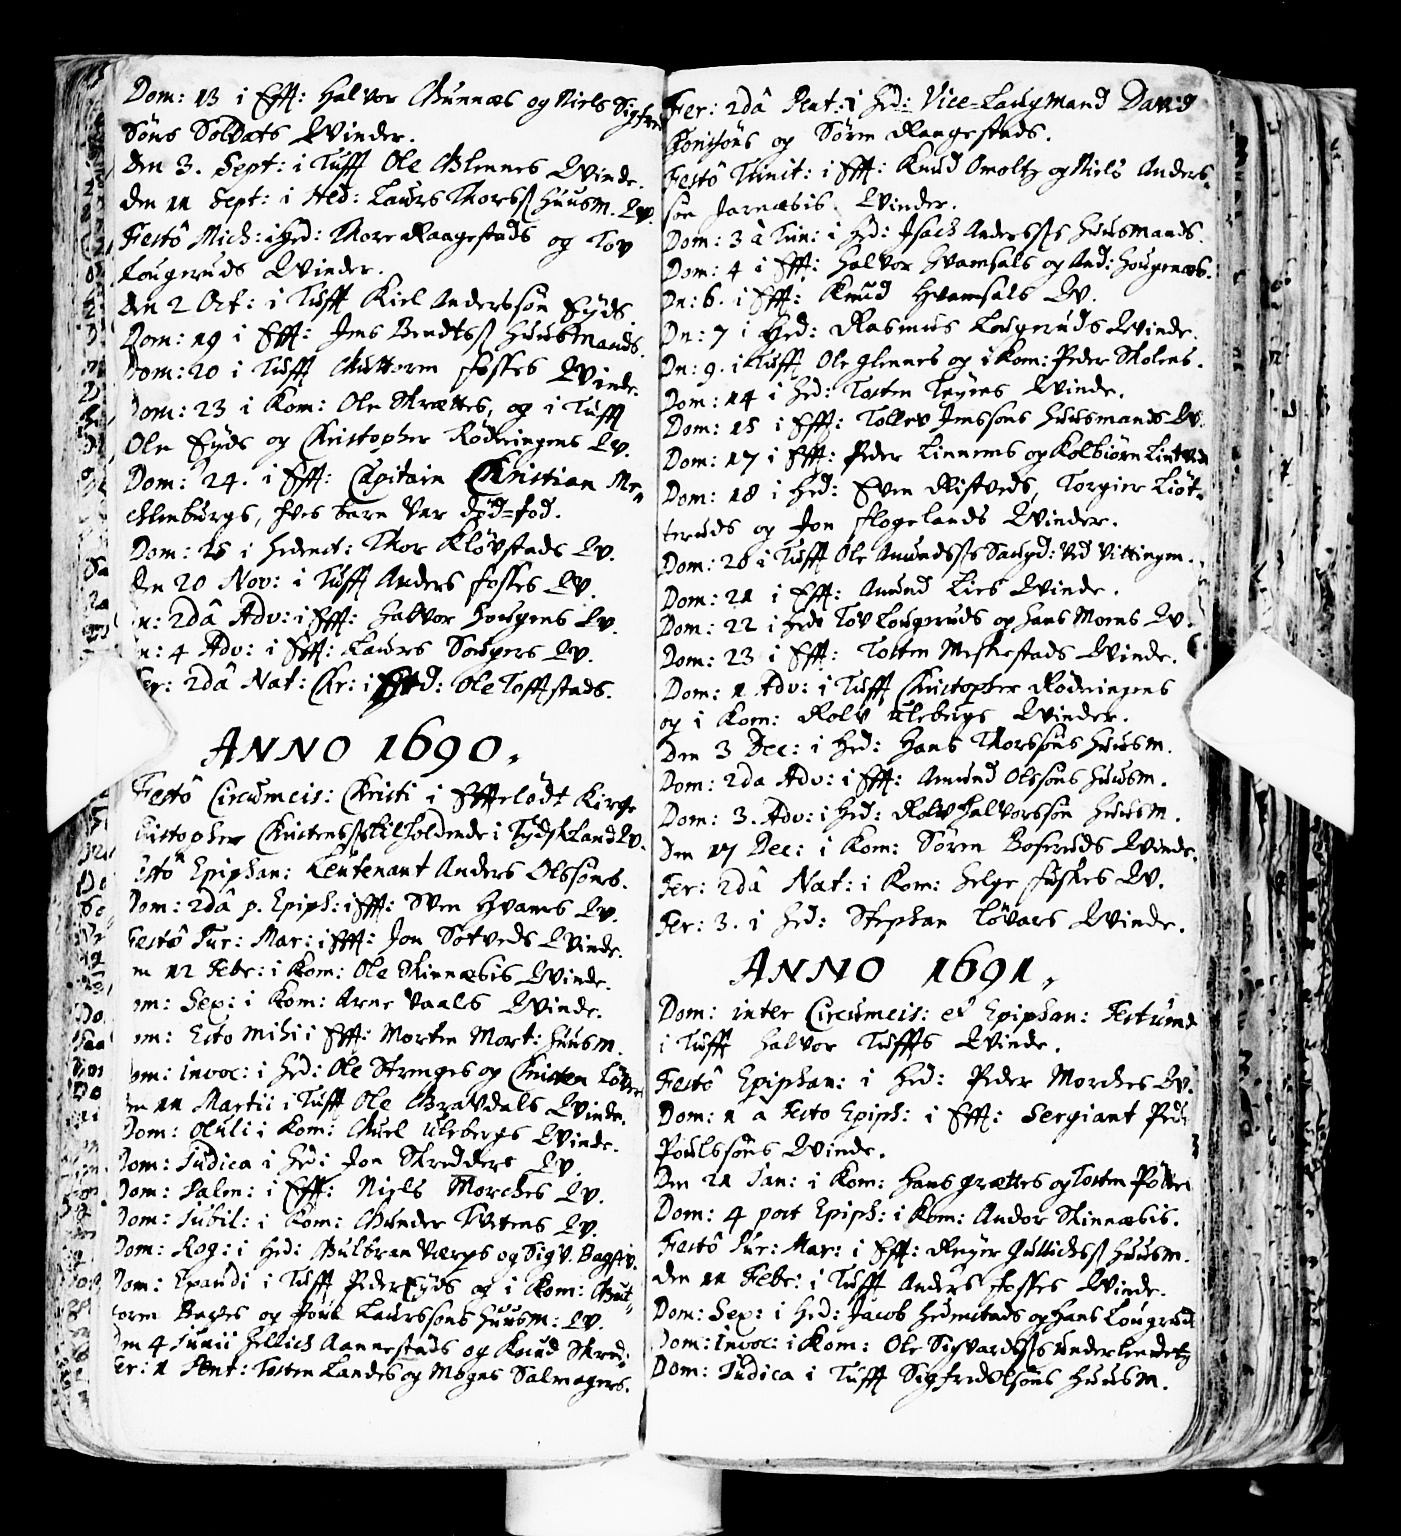 Dom: 13 i Efft: Halvor Gunnæs og Niels Sigfred
Søns Soldats Qvinder.
Den 3. Sept: i Tufft Ole Glennes Qvinde.
den 11 Sept: i Hed: Laurs Thorss: Huusm. Qv.
Festô Mich: i Hed: Thore Raagestads og Tov
Lougeruds Qvinder.
den 2 Oct: i Tufft Kiel Anderssøn Eyds
Dom: 19 i Efft: Jens Bendtss: Huusmands.
Dom: 20 i Tufft Guttorm Fosses Qvinde.
Dom: 23 i Kom: Ole Skrættes, og i Tufft
Ole Eyds og Christopher Rødningens Qv.
Dom: 24. i Efft: Capitain Christian Me-
chlenburgs, hves barn var død-fød.
Dom: 25 i Hedenst: Thor Kløvstads Qv.
den 20 Nov: i Tufft Anders Fosses Qv.
n: 2dâ Adv: i Efft: Halvor Hougens Qv.
n: 4 Adv: i Efft: Laurs Sougers Qv.
Fer: 2dâ Nat: Chr: i Hed: Ole Tofftstads.
ANNO 1690.
Festô Circumcis: Christi i Efftelødt Kirge
Christopher Christenss: tilholdende i Tydskland Qv.
Festô Epiphan: Leutenant Anders Olssøns.
Dom: 2dâ p. Epiph: i Efft: Sven Hvams Qv.
Festô Pur: Mar: i Efft: Jon Sotveds Qvinde.
en 12 Febr: i Kom: Ole Skinnæbis Qvinde.
om: Sex: i Kom: Arne Vaals Qvinde.
om: Esto mihi i Efft: Morten Mort: Huusm.
om: Invoc: i Hed: Ole Strenges og Christen Løver
en 11 Martii i Tufft Ole Gravdals Qvinde.
Dom: Oculi i Kom: Guel Ulebergs Qvinde.
Dom: Judica i Hed: Jon Skredders Qv.
Dom: Palm: i Efft: Niels Morches Qv.
Dom: Jubil: i Kom: Gunder Tvetens Qv.
Dom: Rog: i Hed: Gulbran Værps og Sigv. Bagstv.
Dom: Exaudi i Tufft Peder Eyds og i Kom: Gut-
torm Baches og Poul Laurssøns Huusm: Qv.
en 4 Junii Hellich Aannestads og Knud Skred:
er: 1 Pent: Tosten Landes og Mogns Salmagers.
Fer: 2dâ Pent: i Hed: Vice-Laugmand David
Conisøns og Søren Raagestads.
Festô Trinit: i Efft: Knud Omoltz og Niels Anders
søn Jarnæbis. Qvinder.
Dom: 3 à Trin: i Hed: Isach Anderss:s Huusmands.
Dom: 4 i Efft: Halvor Hvamsals og And: Hougenæs.
Dn: 6. i Efft: Knud Hvamsals Qv.
Dn: 7 i Hed: Rasmus Lougeruds Qvinde.
Dn: 9. i Tufft Ole Glennes og i Kom: Peder Skolens.
Dom: 14 i Hed: Tosten Teyens Qvinde.
Dom: 15 i Efft: Tollev Jenssøns Huusmands Qv.
Dom: 17 i Efft: Peder Linnems og Kolbiørn Lintved
Dom: 18 i Hed: Even Ristveds, Torgier Liøt-
teruds og Jon Flogelands Qvinder.
Dom: 20 i Tufft Ole Amundss:s Saugd: ved Vittingen.
Dom: 21 i Efft: Amund Lies Qvinde.
Dom: 22 i Hed: Tov Lougeruds og Hans Moens Qv.
Dom: 23 i Efft: Tosten Meskestads Qvinde.
Dom: 1 Adv: i Tufft Christopher Rødningens
og i Kom: Rolv Ulebergs Qvinder.
Den 3 Dec: i Hed: Hans Thorssøns Huusm.
Dom: 2da Adv: i Efft: Amund Olssøns Huusm.
Dom: 3. Adv: i Hed: Rolv Halvorssøn Huusm.
Den 17 Dec: i Kom: Søren Boseruds Qvinde.
Fer: 2dâ Nat: i Kom: Helge Fuskes Qv.
Fer: 3. i Hed: Stephan Løvars Qvinde.
ANNO 1691.
Dom: inter Circumcis: et Epiphan: Festum
i Tufft Halvor Tuffts Qvinde.
Festô Epiphan: i Hed: Peder Morches Qv.
Dom: 1 a Festo Epiph: i Efft: Sergiant Peder
Poulssøns Qvinde.
Den 21 Jan: i Kom: Hans Grættes og Tosten Pötter
Dom: 4 post Epiph: i Kom: Andor Skinnæbis.
Festô Pur: Mar: i Efft: Reyer Gullichss: Huusm.
den 11 Febr: i Tufft Anders Fosses Qvinde.
Dom: Sex: i Hed: Jacob Hedenstads og Hans Lougerud
Dom: Invoc: i Kom: Ole Sigvardss:s Underlendetz
Dom: Judica i Tufft Sigfred Olsøns Huusm.